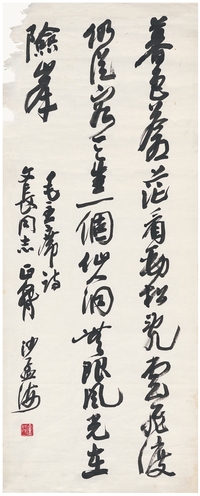 暮色苍茫看劲松乱云飞渡
仍從容天生一個仙洞無限風光在
險峰
毛主席詩
文長同志正腕
沙孟海